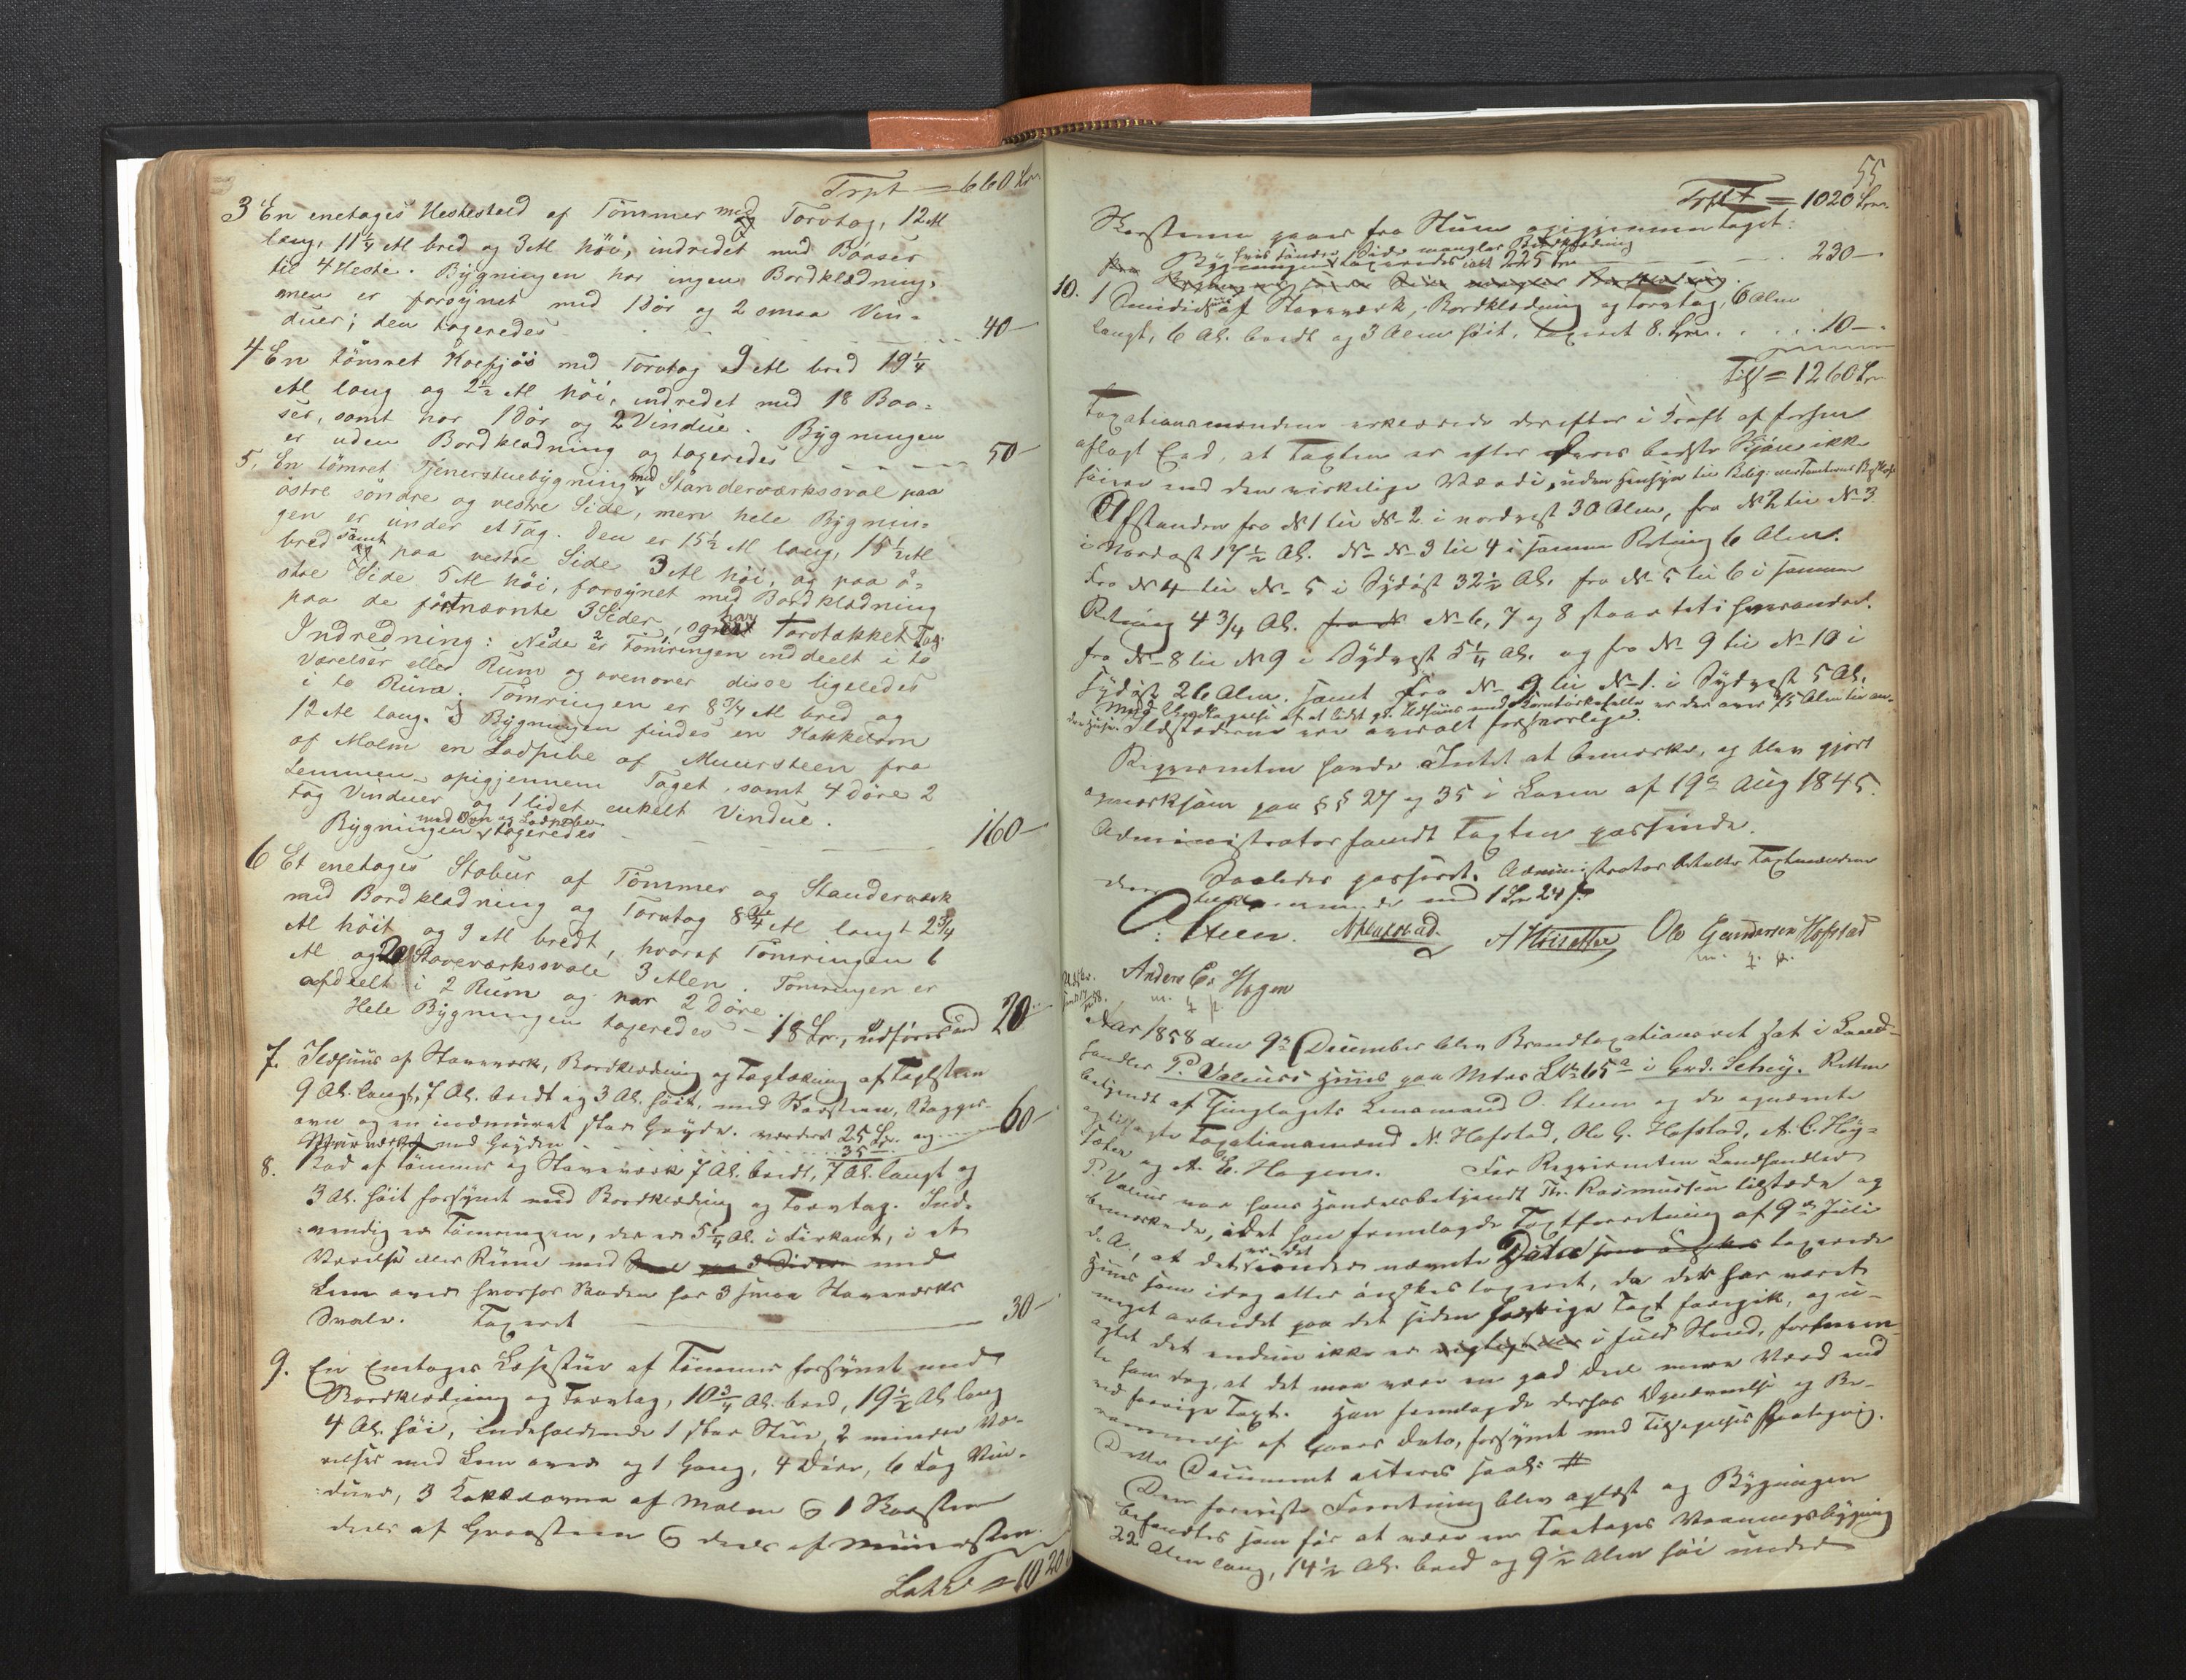 Trpt = 660 Spd
3 En enetages Hestestald af Tømmer med Torvtag, 12 Al
lang, 11 1/4 Al bred og 3 Al høi, indredet med Baaser
til 4 Heste. Bygningen har ingen Bordklædning,
men er forsynet med 1 Dør og 2 smaa Vin-
duer; den taxeredes 40 —
4 En tømret Koefjøs med Torvtag 9 Al bred 19 1/4
Al lang og 2 1/2 Al høi, indredet med 18 Baa-
ser, samt har 1 Dør og 2 Vindue. Bygningen
er uden Bordklædning og taxeredes 50 —
5. En tømret Tjenerstuebygning med Standerværkssval paa
østre søndre og vestre Side, men hele Bygnin-
gen er under et Tag. Den er 15 1/2 Al lang, 15 1/2 Al
bred samt paa vestre Side 3 Al høi, og paa ø-
stre Side 5 Al høi, forsynet med Bordklædning
paa de førstnævnte 3 Sider, og har Torvtækket Tag.
Indredning: Nede er Tømringen inddeelt i to
Værelser eller Rum og ovenover disse ligeledes
i to Rum. Tømringen er 8 3/4 Al bred og
12 Al lang. I Bygningen findes en Kakkelovn
af Malm en Ladpibe af Muursteen fra
Lemmen opigjennem Taget, samt 4 Døre 2
Fag Vinduer og 1 lidet enkelt Vindue.
Bygningen med Ovn og Ladpibe taxeredes 160 —
6 Et enetages Stabur af Tømmer og Standerværk
med Bordklædning og Torvtag 8 3/4 Al langt 2 3/4
Al høit og 9 Al bredt, hvoraf Tømringen 6
Al og Staveværkssvale 3 Alen. Tømringen er
afdeelt i 2 Rum og har 2 Døre.
Hele Bygningen taxeredes — 18 Spd, udføres med 20 —
7. Ildhuus af Stavværk, Bordklædning og Tagtækning af Taglsteen
9 Al. langt, 7 Al. bredt og 3 Al. høit, med Skorsteen, Bagger-
ovn og en indmuret stor Gryde. værdies 25 Spd. og 60 —
Muurværket med Gryden 35 —
8. Bod af Tømmer og Staveværk 7 Al. bredt, 7 Al. langt og
3 Al. høit forsynet med Bordklædning og Torvtag. Ind-
vendig er Tømringen, der er 5 1/4 Al. i Firkant, i et
Værelse eller Rum med med
Lem over hvorhos Boden har 3 smaa Staveværks
Svale. Taxeret 30 —
9. En Eenetages Læsestue af Tømmer forsynet med
Bordklædning og Torvtag, 10 3/4 Al. bred, 19 1/2 Al. lang
4 Al. høi, indeholdende 1 stor Stue, 2 mindre Væ-
relser med Lem over og 1 Gang, 4 Døre, 6 Fag Vin-
duer, 3 Kakkelovne af Malm & 1 Skorsteen
deels af Graasteen & deels af Muursteen.
Latus = 1020
55
Trpt = 1020 Spd.
Skorstenen gaaer fra Stuen opigjennem Taget.
hvis søndre Side mangler Bordklædning
Bygningen taxeredes ialt 225 Spd 230 —
10. 1 Smidie af Stavværk, Bordklædning og Torvtag, 6 Alen
langt, 6 Al. bredt og 3 Alen høit, taxeret 8. Spd. 10 —
Tils = 1260 Spd
Taxationsmændene erklærede derefter i Kraft af forhen
aflagt Eed, at Taxten er efter Deres bedste Skjøn ikke
høiere end den virkelige Værdi, uden Hensyn til Belig:
Afstanden fra No 1 til No 2 i nordvest 30 Alen, fra No 2 til No 3
i Nordost 17 1/2 Al. No 3 til 4 i samme Retning 6 Alen.
Fra No 4 til No 5 i Sydost 32 1/2 Al. fra No 5 til 6 i samme
Retning 4 3/4 Al. No 6, 7 og 8 staar tet i hverandre.
fra No 8 til No 9 i Sydvest 5 1/4 Al. og fra No 9 til No 10 i
Sydost 26 Alen. samt fra No 9 til No 1. i Sydvest 5 Al.
Med Undtagelse af et lidet gl. Ildhuus med er der over 75 Alen til an-
dre Huse. Ildstederne ere overalt forsvarlige.
Reqvirenten havde Intet at bemærke, og blev gjort
opmærksom paa §§ 27 og 35 i Loven af 19de Aug 1845.
Administrator fandt Taxten passende.
Saaledes passeret. Administrator betalte Taxtmændene
1 Spd 24 s.
O Steen. N Hafstad. A Høisether Ole Gundersen Hofstad
m. f. p.
Anders E. Hagen
m. f. p.
Aar 1858 den 9de December blev Brandtaxationsret sat i Land-
handler P. Valeurs Huus paa Mtr. LNo 65a i Grd. Sebøy. Retten
betjendt af Thinglagets Lensmand O. Steen og de opnævnte
og tilsagte Taxationsmænd N. Hafstad, Ole G. Hofstad, A. C. Høy-
sæter og A. E. Hagen. For Reqvirenten Landhandler
P. Valeur var hans Handelsbetjendt Th. Rasmussen tilstede og
bemærkede, idet han fremlagde Taxtforretning af 9de Juli
d. A., at det er det under nævnte Dato taxerede
Huus som idag atter ønskes taxeret, da det har været
meget arbeidet paa det siden forrige Taxt foregik, og u-
agtet det endnu ikke er i fuld Stand, formeen-
te han dog, at det maa være en god Deel mere Værd end
ved forrige Taxt. Han fremlagde derhos Opnævnelse og Be-
rammelse af Gaars Dato, forsynet med Tilsigelses Paategning.
Dette Document acteres saal: #
Den foreviste Forretning blev oplæst og Bygningen
befandtes som før at være en Toetages Vaaningsbygning
22 Alen lang, 14 1/2 Al. bred og 9 1/2 Alen høi under